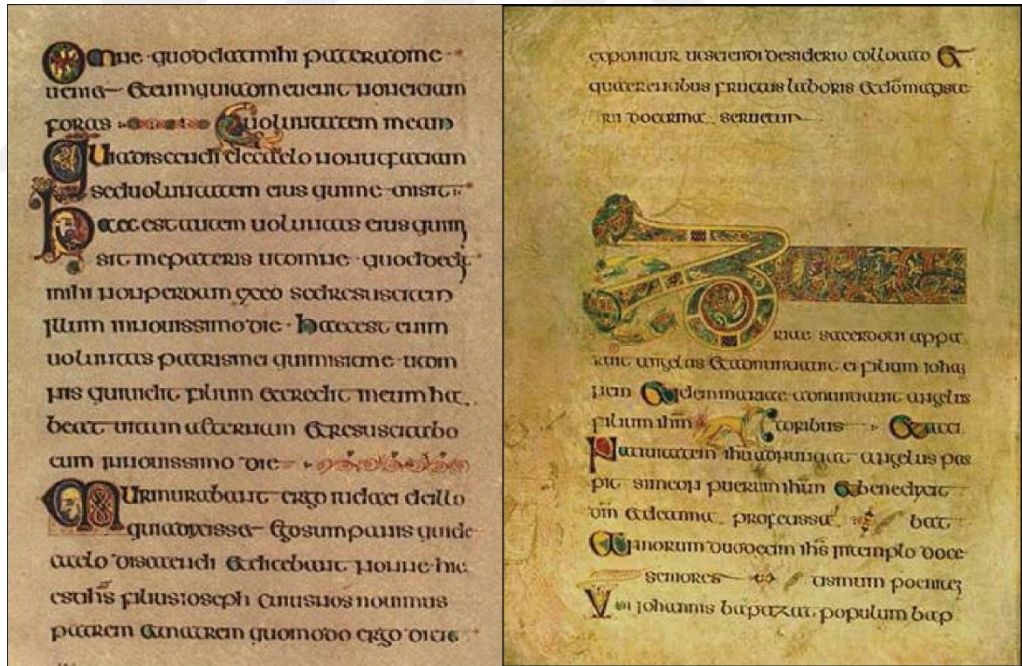 Omne quod dat mihi pater ad me
ueniet & eum qui ad me uenit non eiciam
foras uoluntatem meam
Quia discendi de caelo non ut faciam
sed uoluntatem eius qui me misit
haec est autem uoluntas eius qui mi
sit me pateris ut omne quod dedit
mihi non perdam ex eo sed resuscitem
illum in nouissimo die haec est enim
uoluntas patris mei qui misit me ut om
nis qui uidit filium & credit in eum ha
beat uitam aeternam & resuscitabo
eum in nouissimo die
Murmurabant ergo iudaei de illo
quia dixisset ego sum panis qui de
caelo discendi & dicebant nonne hic
est ihs filius ioseph cuius nos nouimus
patrem & matrem quomodo ergo dicit
exponitur ut sciendi desiderio collocato &
quaerentibus fructus laboris & dom magiste
rii doctrina seruetur
riae sacerdoti appa
ruit angelus & adnuntiauit ei filium iohan
nem & idem mariae adnuntiauit angelus
filium ihm toribus & acci
Natiuitatem ihu adnuntiat angelus pas
pit simeon puerum ihm & benedixit
dm & de anna profetissa bat
& annorum duodecim ihs in templo doce
seniores tismum poenitentiae
Vbi iohannis baptizat populum bap